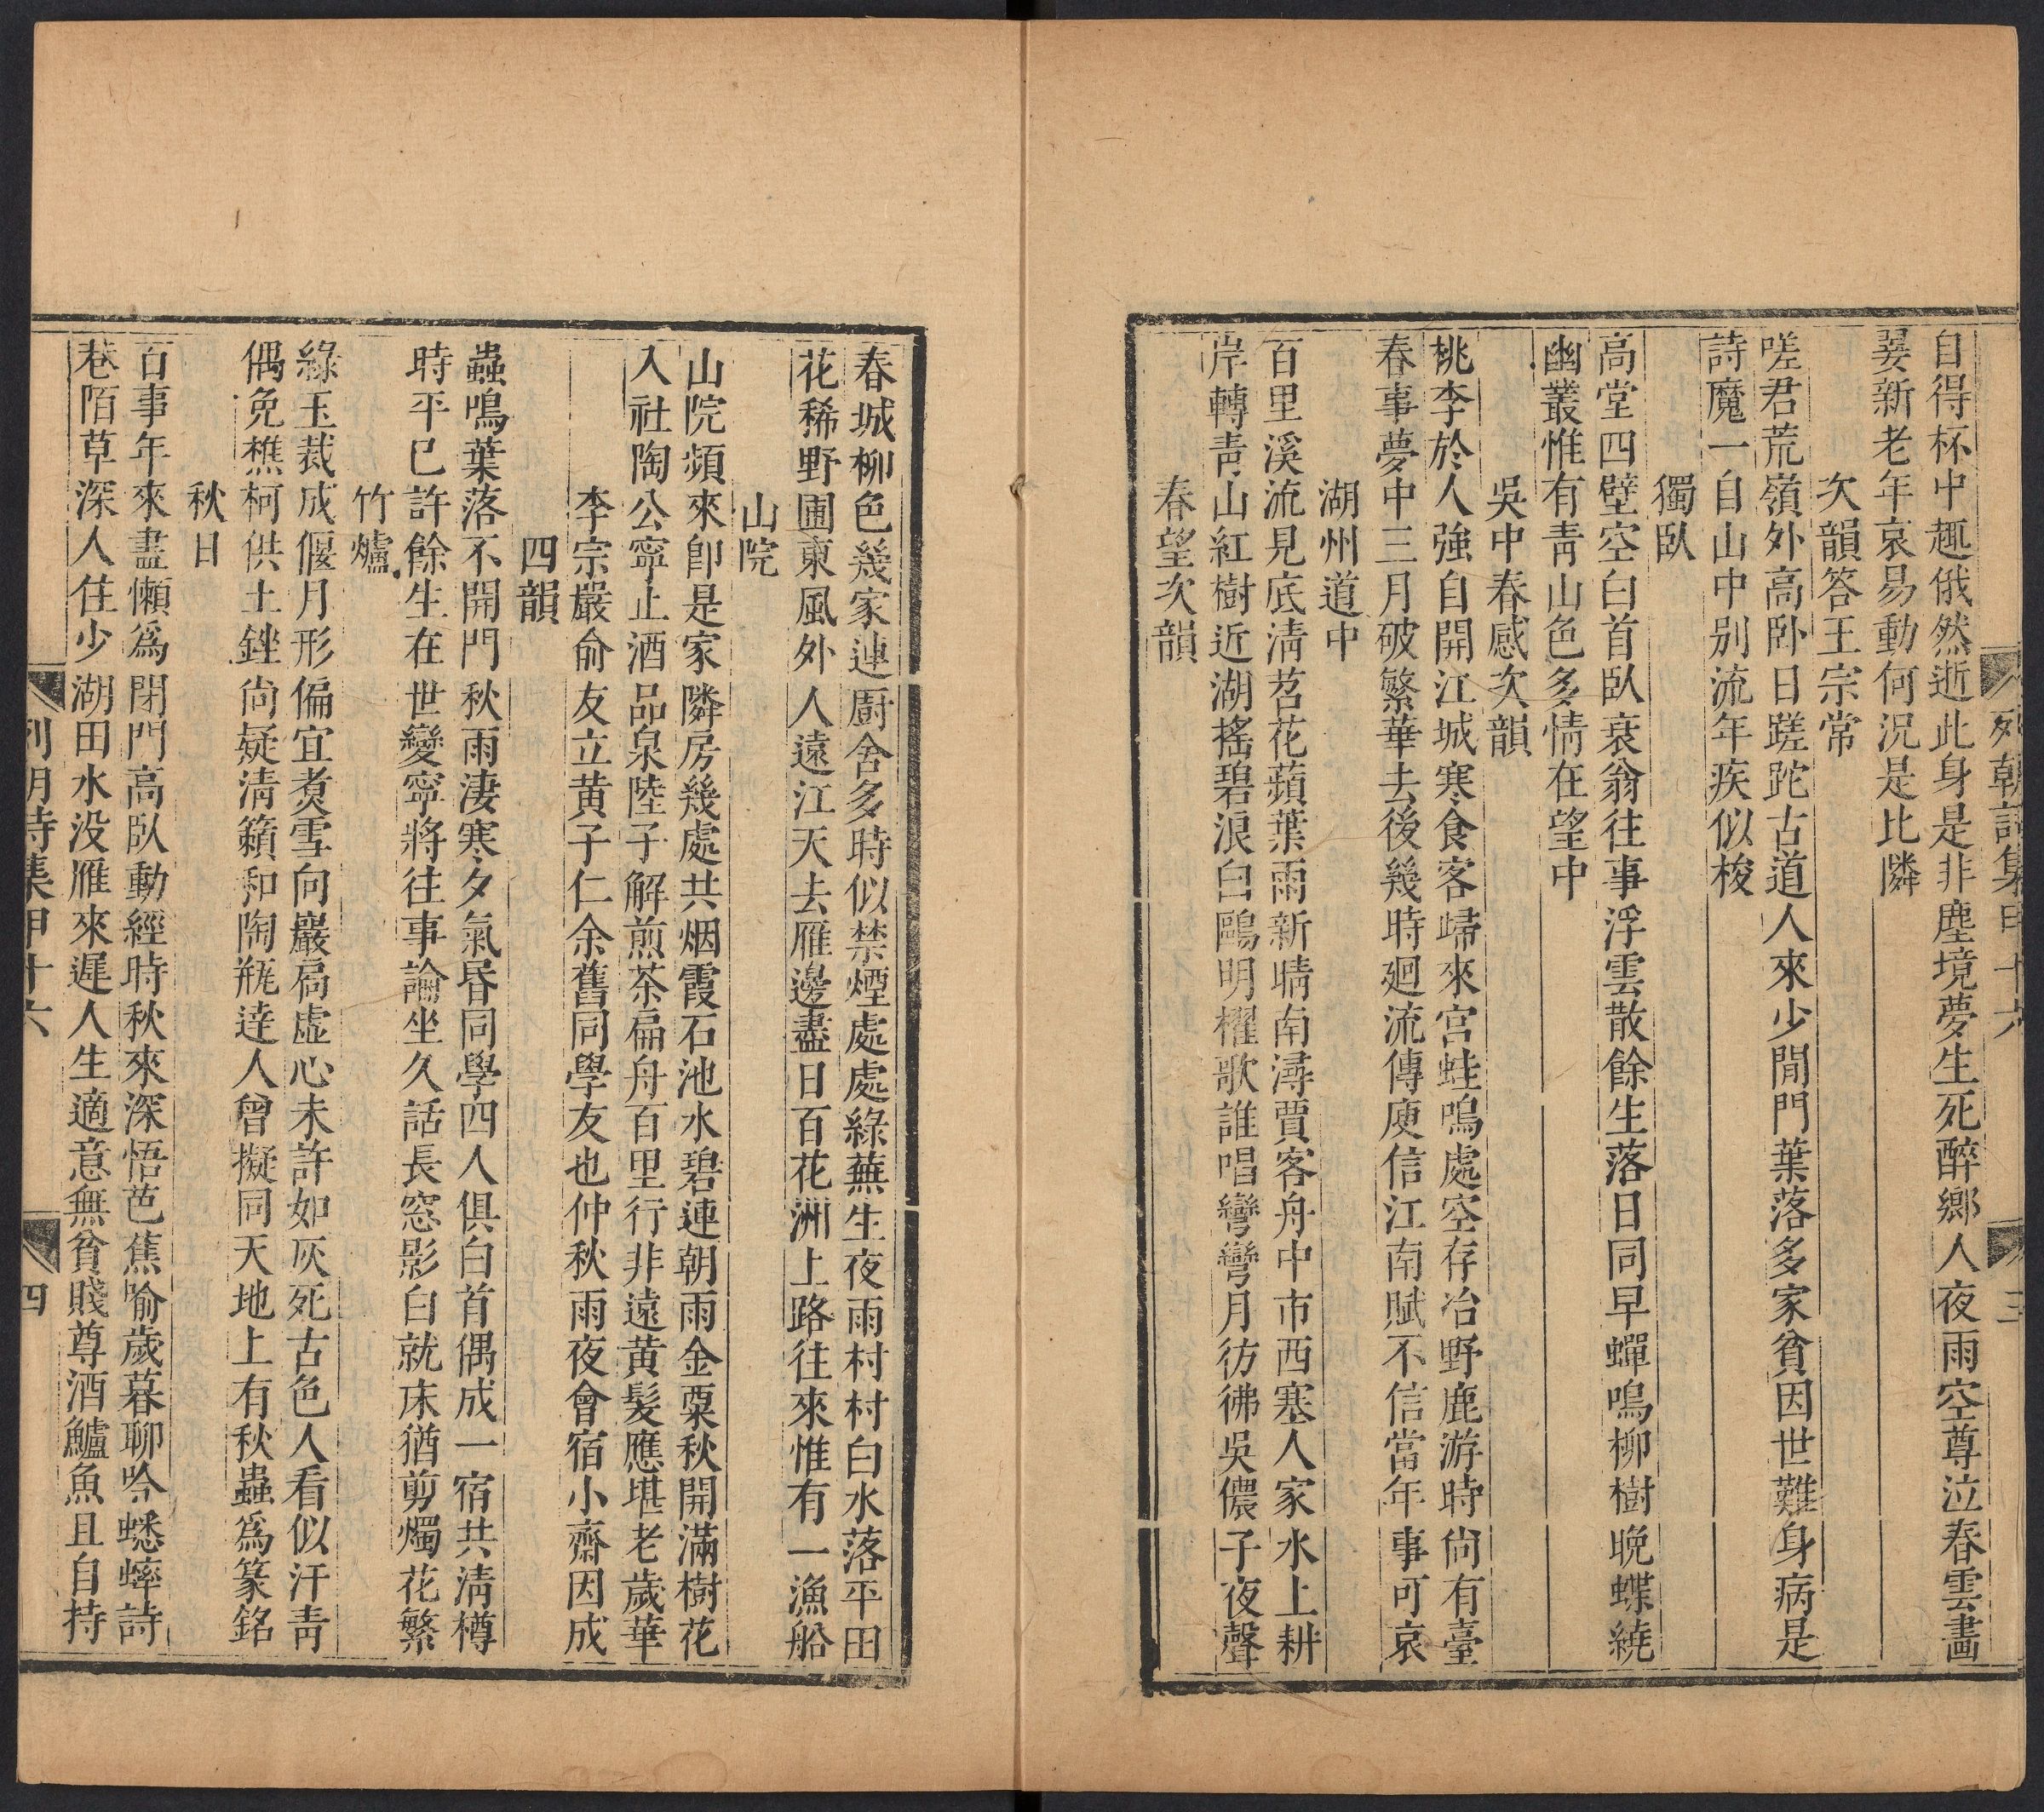 自得杯中趣俄然逝此身是非塵境夢生死醉鄉人夜雨空尊泣春雲畫
翣新老年哀易動何況是比隣
次韻答王宗常
嗟君荒嶺外高卧日蹉跎古道人來少閒門葉落多家貧因世難身病是
詩魔一自山中别流年疾似梭
獨臥
高堂四壁空白首臥衰翁往事浮雲散餘生落日同早蟬鳴柳樹晚蝶繞
幽叢惟有青山色多情在望中
吳中春感次韻
桃李於人強自開江城寒食客歸來宮蛙鳴處空存冶野鹿游時尙有臺
春事夢中三月破繁華去後幾時廻流傳庾信江南賦不信當年事可哀
湖州道中
百里溪流見底淸苕花蘋葉雨新晴南潯賈客舟中市西塞人家水上耕
岸轉靑山紅樹近湖搖碧浪白鷗明櫂歌誰唱彎彎月彷彿吳儂子夜聲
春望次韻
列朝詩集甲十六
三
春城柳色幾家連廚舍多時似禁煙處處綠蕪生夜雨村村白水落平田
花稀野圃東風外人遠江天去雁邊盡日百花洲上路往來惟有一漁船
山院
山院頻來卽是家隣房幾處共烟霞石池水碧連朝雨金粟秋開滿樹花
入社陶公寧止酒品泉陸子解煎茶扁舟百里行非遠黃髮應堪老歲華
李宗嚴俞友立黃子仁余舊同學友也仲秋雨夜會宿小齋因成
四韻
蟲鳴葉落不開門秋雨淒寒夕氣昏同學四人俱白首偶成一宿共淸樽
時平已許餘生在世變寧將往事論坐久話長窓影白就床猶剪燭花繁
竹爐
綠玉裁成偃月形偏宜煑雪向巖扃虛心未許如灰死古色人看似汗靑
偶免樵柯供土銼尙疑淸籟和陶瓶達人曾擬同天地上有秋蟲爲篆銘
秋日
百事年來盡懶爲閉門高臥動經時秋來深悟芭蕉喻歲暮聊吟蟋蟀詩
巷陌草深人住少湖田水没雁來遲人生適意無貧賤尊酒鱸魚且自持
列朝詩集甲十六
四